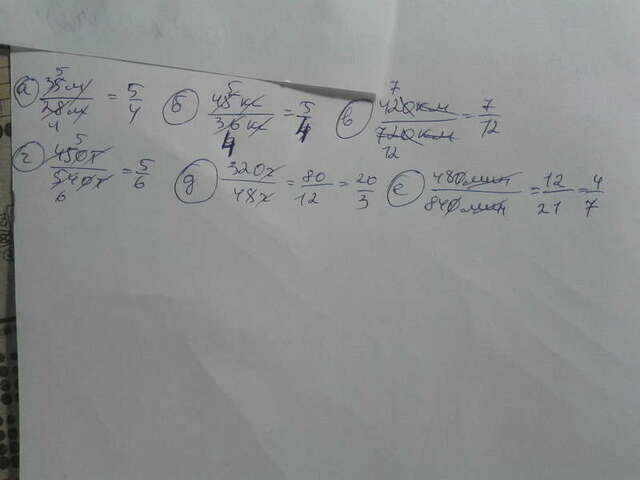 а) 35м/28м = 5/4 б) 45кг/36кг = 5/4 в) 420км/720км = 7/12
г) 450т/540т = 5/6 д) 320г/48г = 80/12 = 20/3 е) 480мин/840мин = 12/21 = 4/7